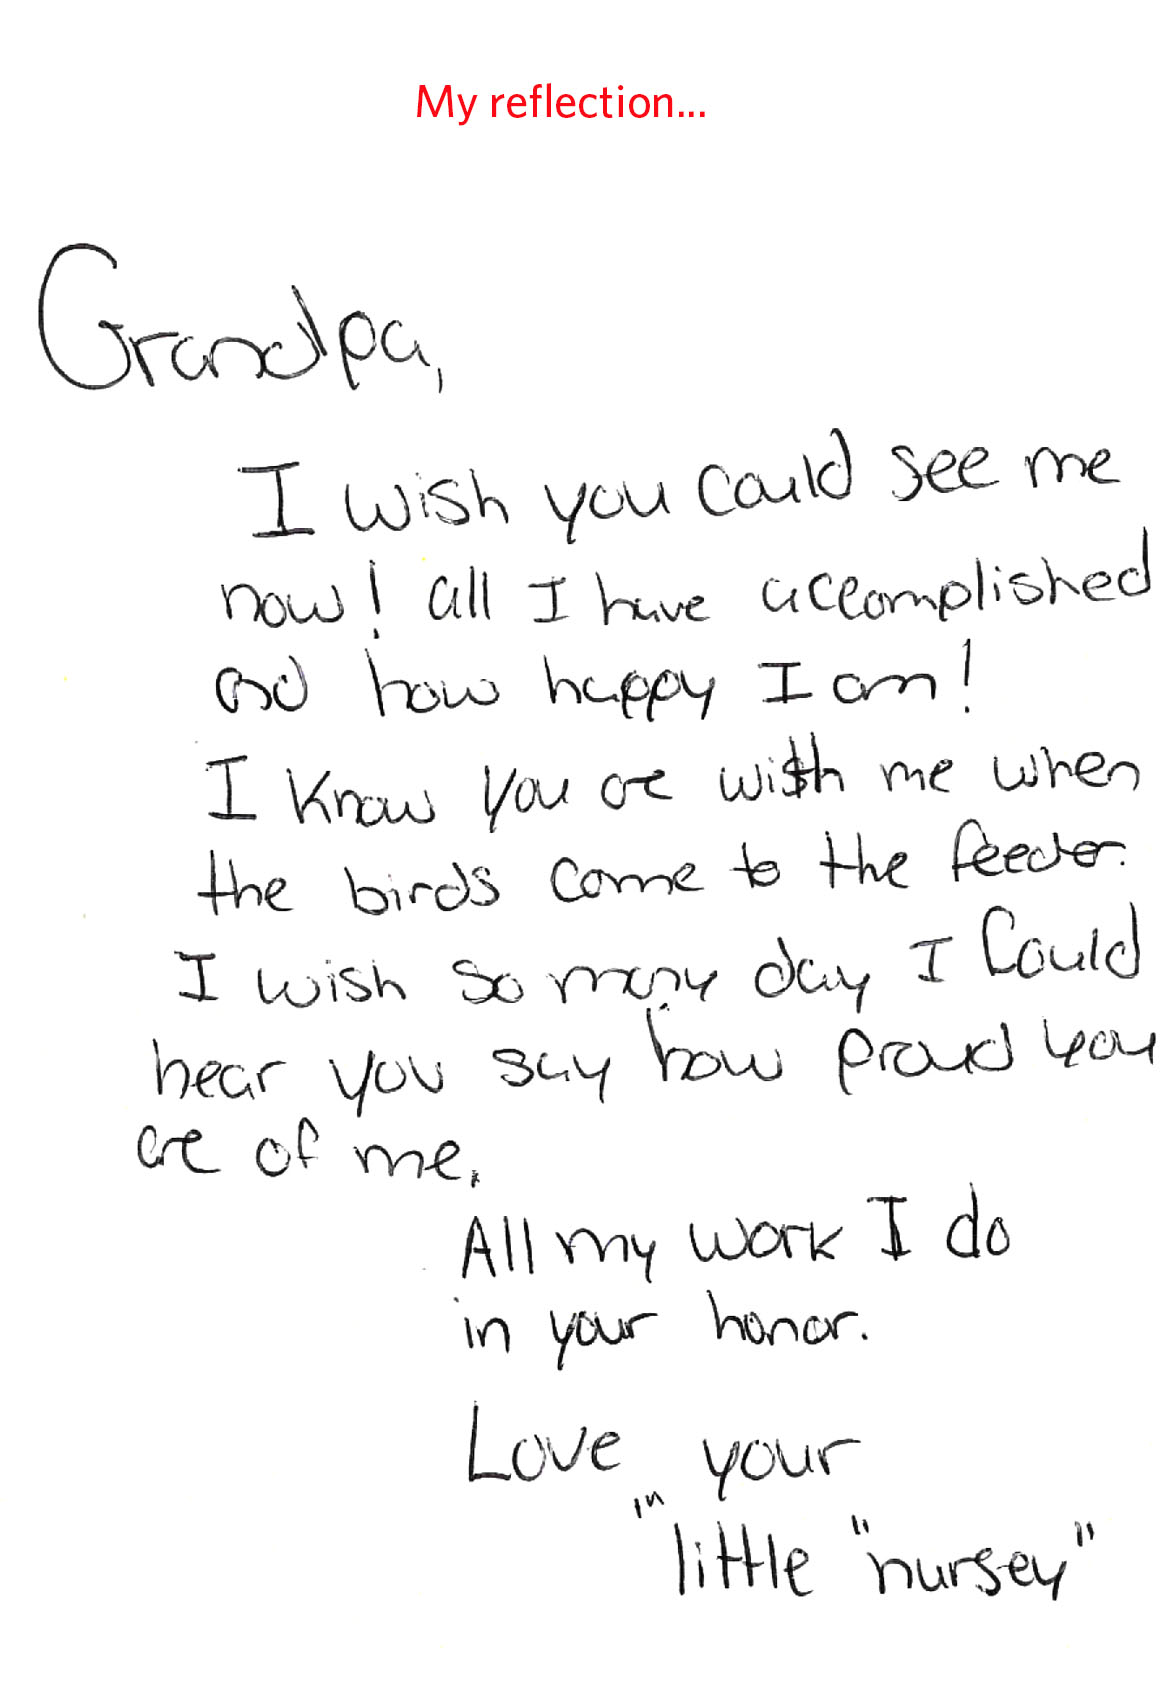 My reflection...
Grandpa,
I wish you could see me
now! all I have accomplished
and how happy I am!
I know you are with me when
the birds come to the feeder.
I wish so many day I could
hear you say how proud you
are of me.
All my work I do
in your honor.
Love your
"little "nursey"